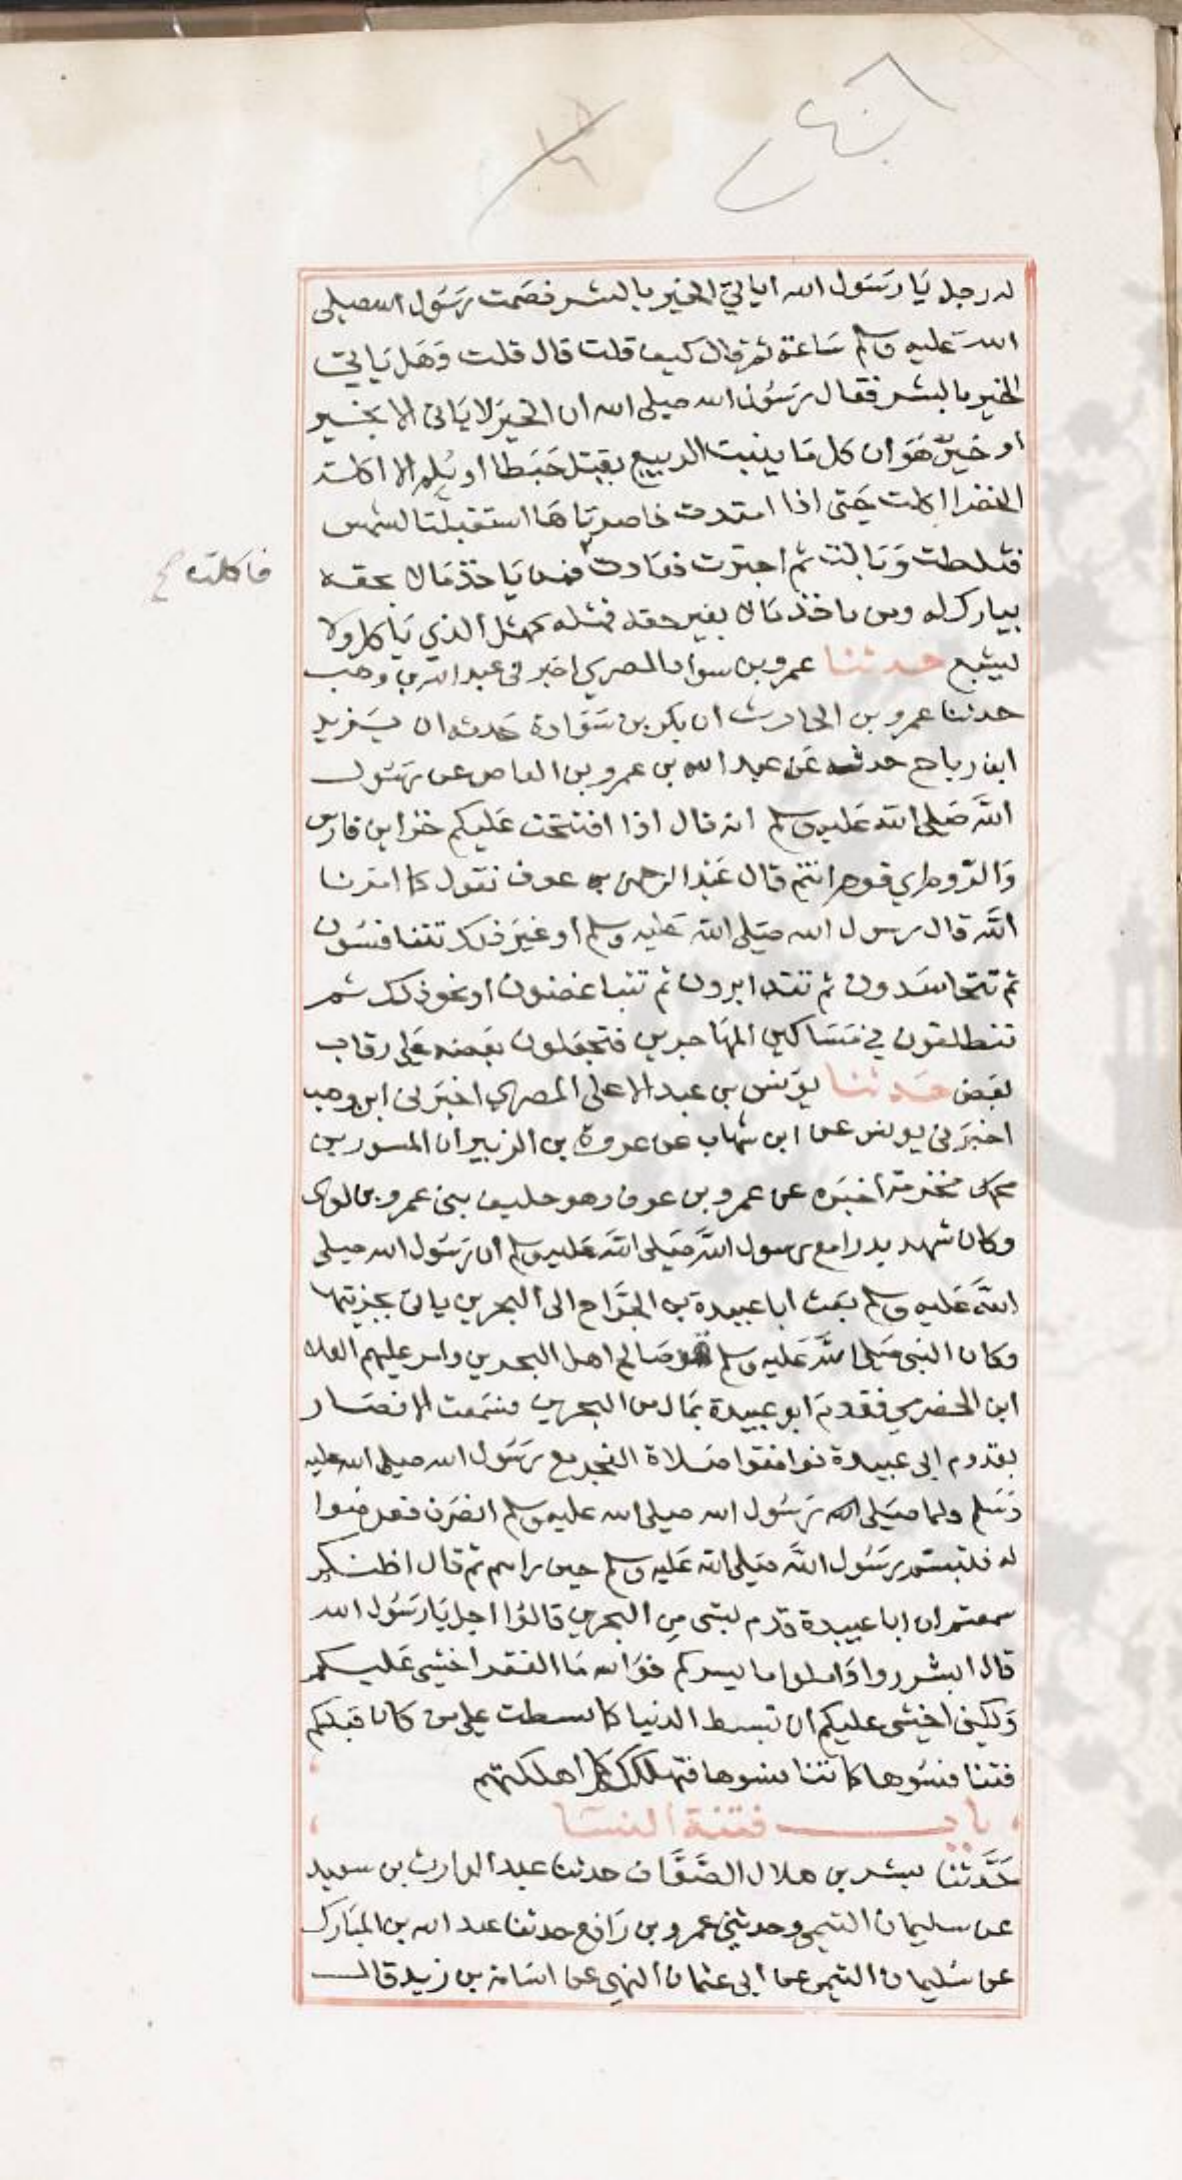 له رجل يا رسول الله اياتي الخير بالشر فصمت رسول الله صلى
الله عليه وسلم ساعة ثم قال كيف قلت قال قلت وهل ياتي
الخير بالشر فقال رسول الله صلى الله ان الخير لا ياتي الا بخير
او خير هو ان كل ما ينبت الربيع يقتل حبطا او يلم الا اكلة
الخضر اكلت حتى اذا امتدت خاصرتاها استقبلت الشمس
فثلطت وبالت ثم اجترت فعادت فمن ياخذ مالا بحقه
فاكلت صح
يبارك له ومن ياخذ مالا بغير حقه فمثله كمثل الذي ياكل ولا
يشبع حدثنا عمرو بن سواد المصري اخبرني عبد الله بن وهب
حدثنا عمرو بن الحارث ان بكر بن سوادة حدثه ان يزيد
ابن رباح حدثه عن عبد الله بن عمرو بن العاص عن رسول
الله صلى الله عليه وسلم انه قال اذا افتتحت عليكم خزاين فارس
والروم اي قوم انتم قال عبد الرحمن بن عوف نقول كما امرنا
الله قال رسول الله صلى الله عليه وسلم او غير ذلك تتنافسون
ثم تتحاسدون ثم تتدابرون ثم تتباغضون او نحو ذلك ثم
تنطلقون في مساكين المهاجرين فتجعلون بعضه على رقاب
بعض حدثنا يونس بن عبد الاعلى المصري اخبرني ابن وهب
اخبرني يونس عن ابن شهاب عن عروة بن الزبير ان المسور بن
مخرمة اخبره عن عمرو بن عوف وهو حليف بني عمرو بن لوي
وكان شهد بدرا مع رسول الله صلى الله عليه وسلم ان رسول الله صلى
الله عليه وسلم بعث ابا عبيدة بن الجراح الى البحرين ياتي بجزيتها
وكان النبي صلى الله عليه وسلم هو صالح اهل البحرين وامر عليهم العلا
ابن الحضرمي فقدم ابو عبيدة بمال من البحرين فسمعت الانصار
بقدوم ابي عبيدة فوافقوا صلاة الفجر مع رسول الله صلى الله عليه
وسلم ولما صلى رسول الله صلى الله عليه وسلم انصرف فعرضوا
له فتبسم رسول الله صلى الله عليه وسلم حين راهم ثم قال اظنكم
سمعتم ان ابا عبيدة قدم بشي من البحرين قالوا اجل يا رسول الله
قال ابشروا واملوا ما يسركم فوالله ما الفقر اخشى عليكم
ولكني اخشى عليكم ان تبسط الدنيا كما بسطت على من كان قبلكم
فتنافسوها كما تنافسوها فتهلككم كما اهلكتهم
باب فتنة النسا
حدثنا بشر بن هلال الصواف حدثنا عبد الوارث بن سعيد
عن سليمان التيمي وحدثني عمرو بن رافع حدثنا عبد الله بن المبارك
عن سليمان التيمي عن ابي عثمان النهدي عن اسامة بن زيد قال